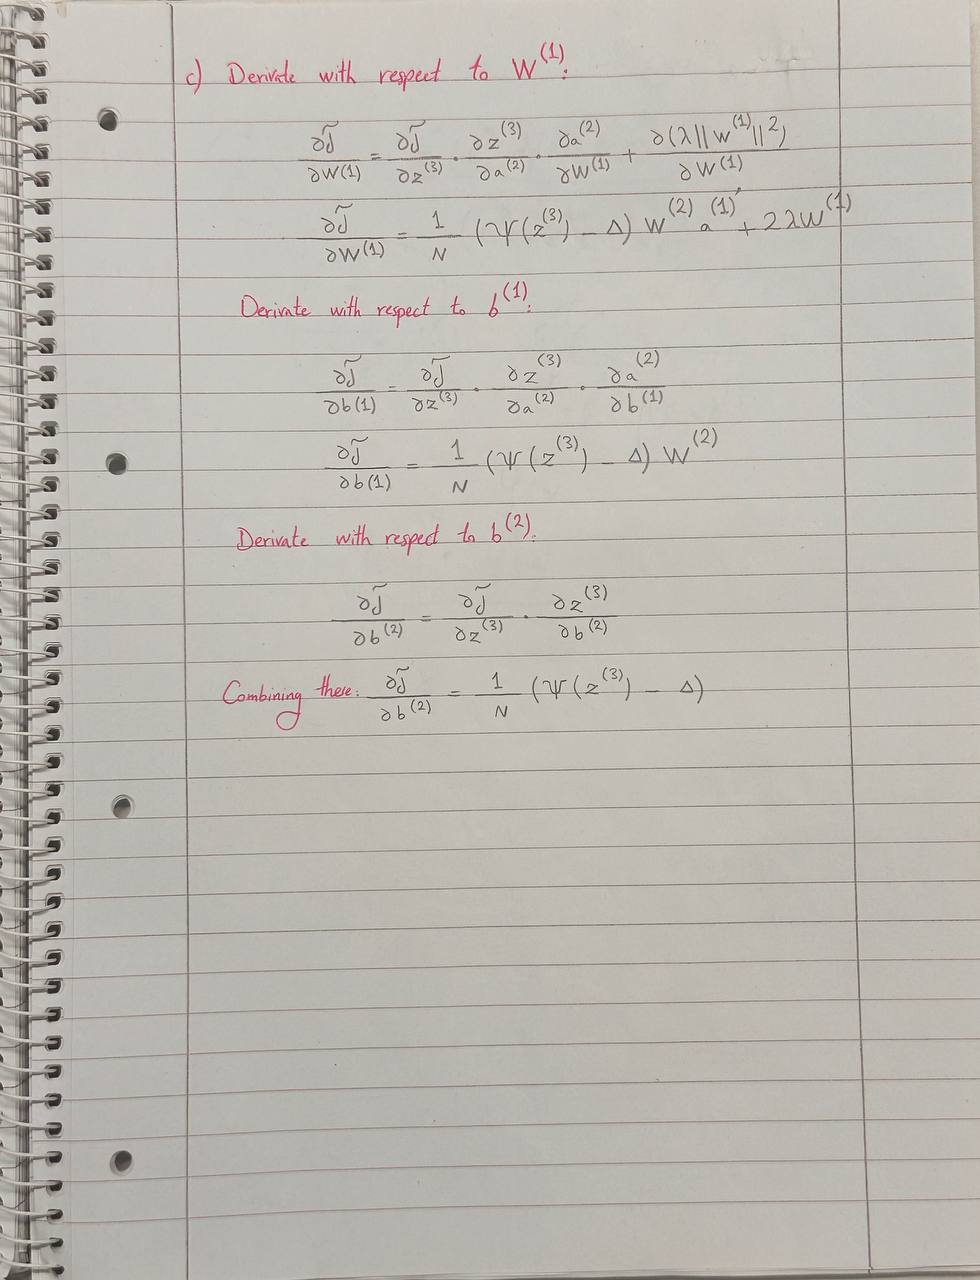 c) Derivate with respect to W^(1):
∂J̃/∂W(1) = ∂J̃/∂z^(3) · ∂z^(3)/∂a^(2) · ∂a^(2)/∂W^(1) + ∂(λ||W^(1)||^2)/∂W^(1)
∂J̃/∂W^(1) = 1/N (Ψ(z^(3)) - Δ) W^(2) a^(1)' + 2λW^(1)
Derivate with respect to b^(1):
∂J̃/∂b(1) = ∂J̃/∂z^(3) · ∂z^(3)/∂a^(2) · ∂a^(2)/∂b^(1)
∂J̃/∂b(1) = 1/N (Ψ(z^(3)) - Δ) W^(2)
Derivate with respect to b^(2):
∂J̃/∂b^(2) = ∂J̃/∂z^(3) · ∂z^(3)/∂b^(2)
Combining these: ∂J̃/∂b^(2) = 1/N (Ψ(z^(3)) - Δ)